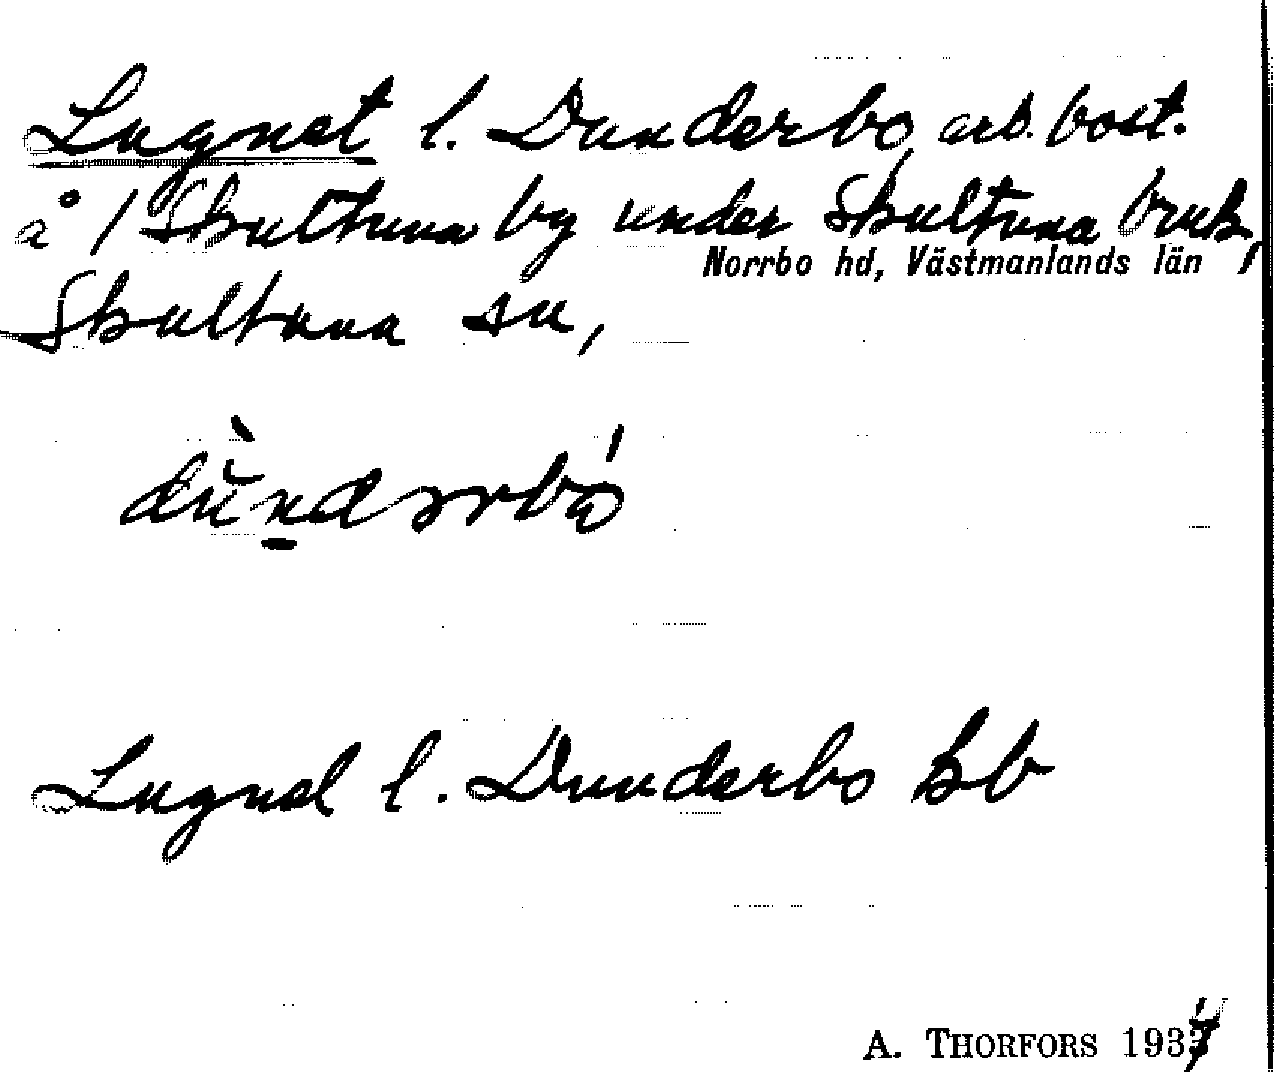 Lugnet l. Dunderbo arb. bost.
å 1 Skultuna by under Skultuna bruk,
Norrbo hd, Västmanlands län
Skultuna sn,
Lugnet l. Dunderbo hb
A. THORFORS 193